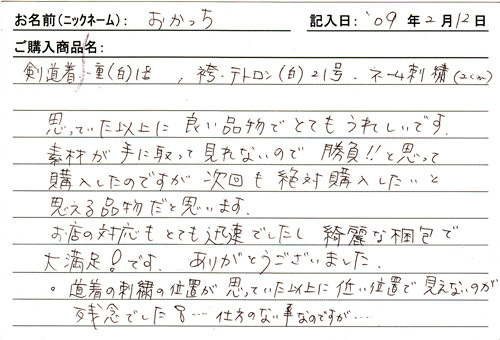 お名前(ニックネーム): おかっち 記入日: '09年2月12日
ご購入商品名:
剣道着・一重(白)1号 , 袴・テトロン(白)21号. ネーム刺繍(2cm)
思っていた以上に良い品物でとてもうれしいです.
素材が手に取って見れないので勝負!!と思って
購入したのですが次回も絶対購入したいと
思える品物だと思います.
お店の対応もとても迅速でしたし綺麗な梱包で
大満足!です. ありがとうございました.
。道着の刺繍の位置が思っていた以上に低い位置で見えないのが
残念でした… 仕方のない事なのですが…